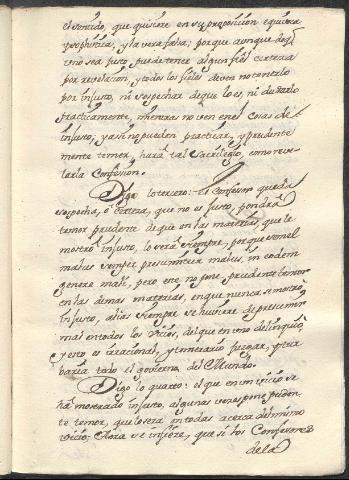 el sentido, que quisiere en su proposicion equivoca
y sophistica, y la vera falsa; porque aunque de q̃
uno sea justo puede tener algun fiel certeza
por revelacion, y todos los fieles deven no tenerlo
por injusto, ni sospechar de que lo es, ni dudarlo
practicamente, mientras no ven en el cosas de
injusto; y assi no pueden practicar, y prudente
mente temer, hará tal Sacrilegio, como reve-
lar la Confession.
Digo lo tercero: el Confessor que dá
sospecha, o certeza, que no es justo, pondrá
temor prudente de que en las materias, que le
mostró injusto, lo será siempre, porque semel
malus semper præsumitur malus, in eodem
genere mali, pero esse no pone prudente temor
en las demas materias, en que nunca se mostró
injusto, alias siempre se huviere de presumir
mal en todos los vicios, del que en uno delinquió,
y esto es irracional, y temerario juzgar, y tur
baria todo el govierno del Mundo.
Digo lo quarto: el que en un vicio se
há mostrado injusto, algunas veces pone pruden
te temor, que lo será en todas acerca del mismo
vicio; Ahora se infiere, que si los Confesores
de la